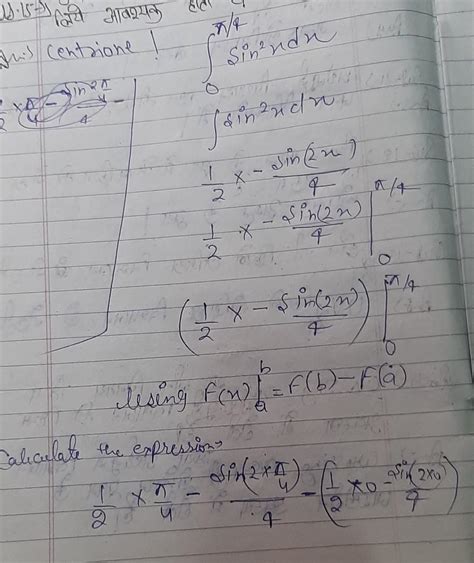 लिये आवश्यक होता
Ans:- Centrione !
∫₀^π/4 sin²x dx
∫sin²x dx
1/2 x - sin(2x)/4
1/2 x - sin(2x)/4 |₀^π/4
(1/2 x - sin(2x)/4) |₀^π/4
Using F(x)|ₐᵇ = F(b) - F(a)
Calculate the expression
1/2 × π/4 - sin(2×π/4)/4 - (1/2 × 0 - sin(2×0)/4)